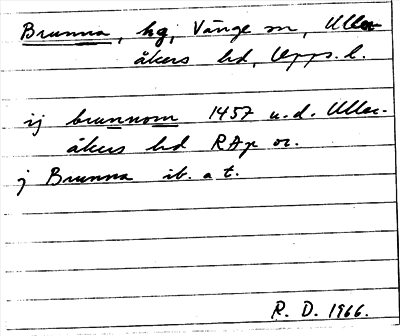 Brunna, hg, Vänge sn, Uller-
åkers hd, Upps. l.
ij brunnom 1457 u.d. Uller-
åkers hd RAp or.
j Brunna ib. a t.
R. D. 1966.